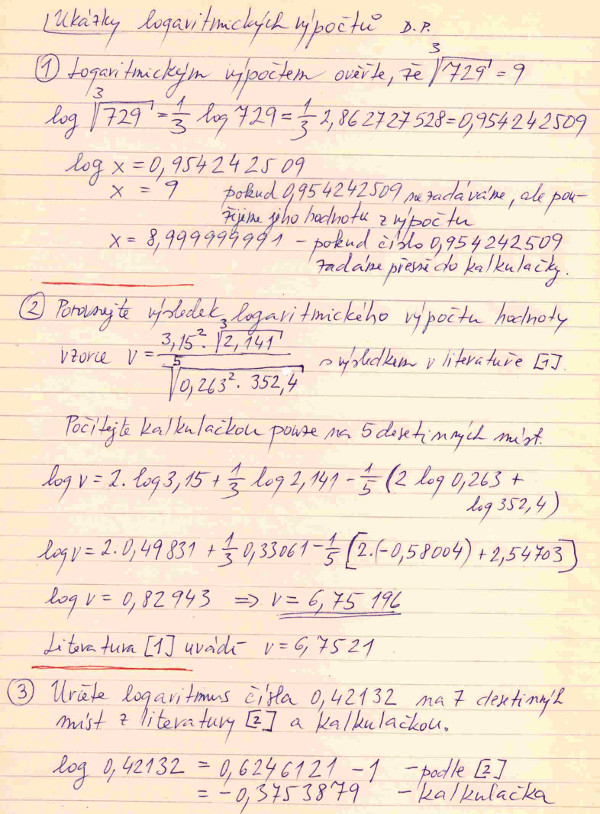 Ukázky logaritmických výpočtů D.P.
① Logaritmickým výpočtem ověřte, že ∛729 = 9
log ∛729 = 1/3 log 729 = 1/3 2,862727528 = 0,954242509
log x = 0,954242509
x = 9 pokud 0,954242509 nezadáváme, ale pou-
žijeme jeho hodnotu z výpočtu
x = 8,999999991 – pokud číslo 0,954242509
zadáme přesně do kalkulačky.
② Porovnejte výsledek logaritmického výpočtu hodnoty
vzorce v = (3,15² · ∛2,141) / ⁵√(0,263² · 352,4) s výsledkem v literatuře [1].
Počítejte kalkulačkou pouze na 5 desetinných míst.
log v = 2. log 3,15 + 1/3 log 2,141 – 1/5 (2 log 0,263 +
log 352,4)
log v = 2. 0,49831 + 1/3 0,33061 – 1/5 [2.(-0,58004) + 2,54703]
log v = 0,82943 ⇒ v = 6,75196
Literatura [1] uvádí v = 6,7521
③ Určete logaritmus čísla 0,42132 na 7 desetinných
míst z literatury [2] a kalkulačkou.
log 0,42132 = 0,6246121 – 1 – podle [2]
= – 0,3753879 – kalkulačka